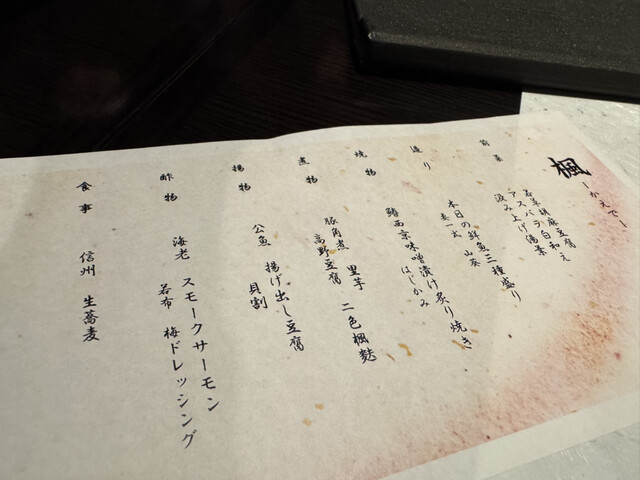 楓
ーかえでー
前菜
若芽胡麻豆腐
アスパラ白和え
汲み上げ湯葉
造り
本日の鮮魚三種盛り
妻一式 山葵
焼物
鰆西京味噌漬け炙り焼き
はじかみ
煮物
豚角煮 里芋 二色楓麩
高野豆腐
揚物
公魚 揚げ出し豆腐
貝割
酢物
海老 スモークサーモン
若布 梅ドレッシング
食事
信州 生蕎麦